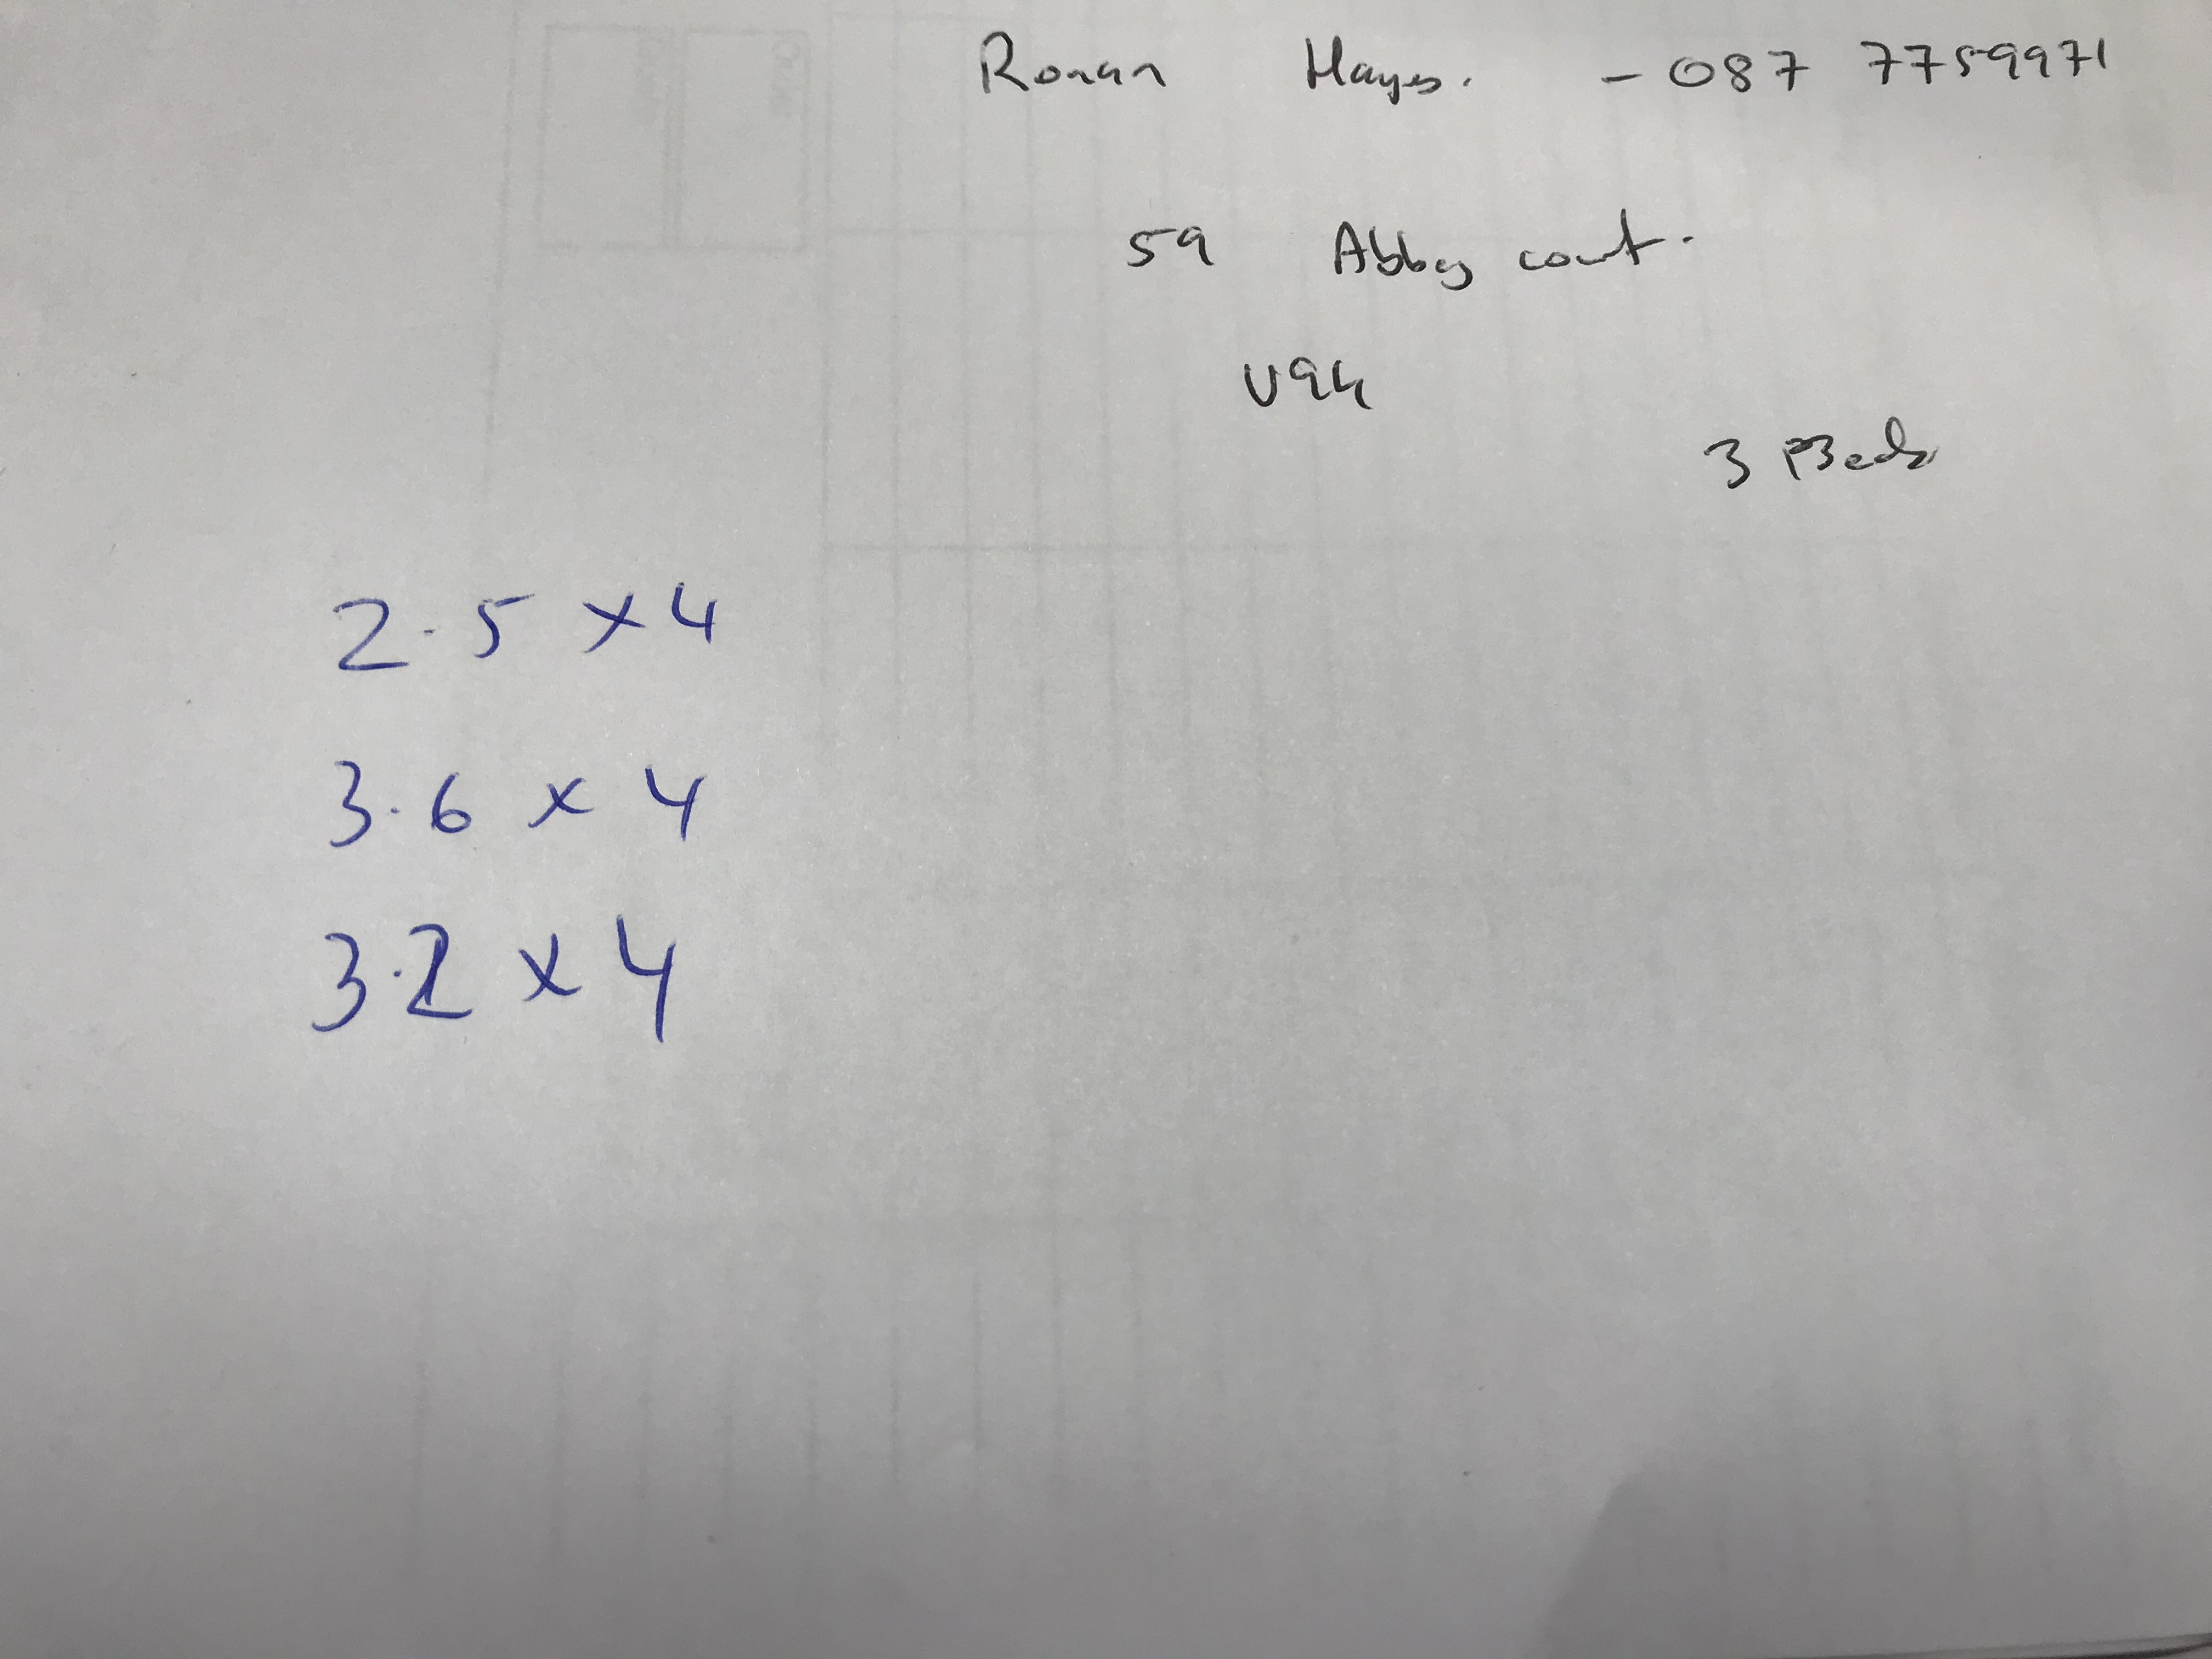 Ronan Hayes. - 087 7759971
59 Abbey court.
V94
3 Beds
2.5 x 4
3.6 x 4
3.2 x 4